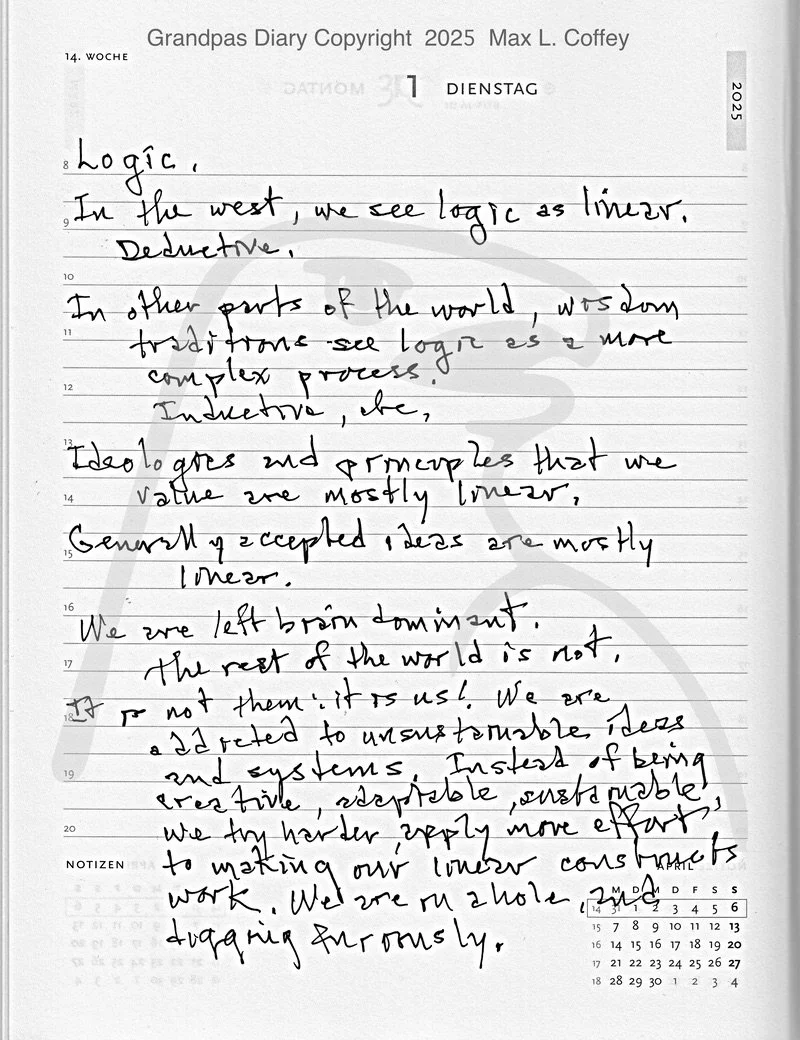 Grandpas Diary Copyright 2025 Max L. Coffey
14. WOCHE
1 DIENSTAG
2025
8 Logic.
9 In the west, we see logic as linear.
Deductive.
10
In other parts of the world, wisdom
11 traditions see logic as a more
complex process.
12
Inductive, etc,
13 Ideologies and principles that we
14 value are mostly linear.
Generally accepted ideas are mostly
15
linear.
16
We are left brain dominant.
17 The rest of the world is not.
18 It is not them: it is us! We are
addicted to unsustainable ideas
19 and systems. Instead of being
creative, adaptable, sustainable,
20 we try harder, apply more effort
NOTIZEN to making our linear constructs
APRIL
work. We are in a hole, and
digging furiously.
M D M D F S S
14 31 1 2 3 4 5 6
15 7 8 9 10 11 12 13
16 14 15 16 17 18 19 20
17 21 22 23 24 25 26 27
18 28 29 30 1 2 3 4